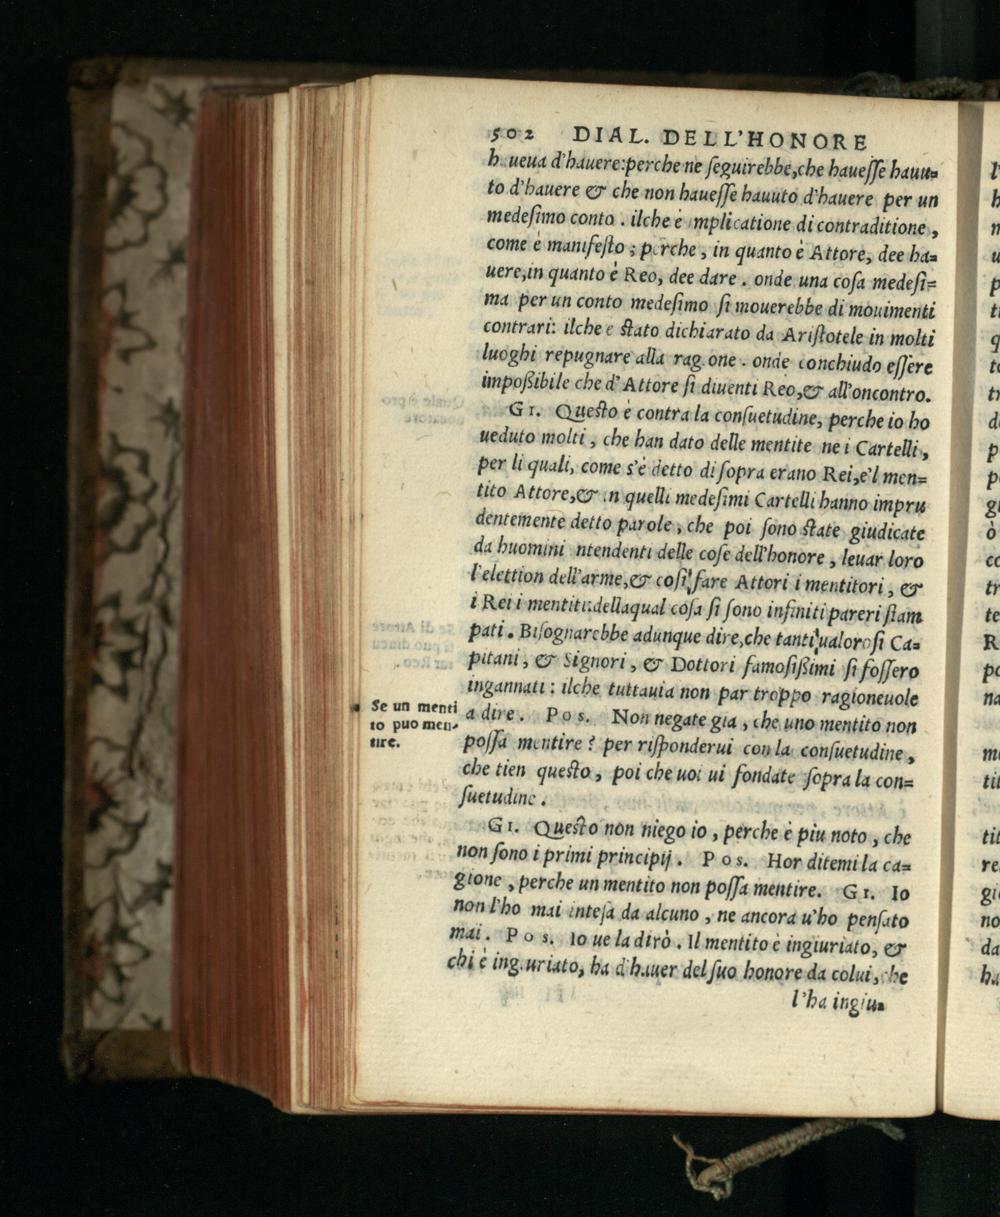 502 DIAL. DELL'HONORE
h ueua d'hauere: perche ne ſeguirebbe, che haueſſe hauu=
to d'hauere & che non haueſſe hauuto d'hauere per un
medeſimo conto. ilche è mplicatione di contraditione,
come è manifeſto; perche, in quanto è Attore, dee ha=
uere, in quanto è Reo, dee dare. onde una coſa medeſi=
ma per un conto medeſimo ſi mouerebbe di mouimenti
contrari: ilche e ſtato dichiarato da Ariſtotele in molti
luoghi repugnare alla rag.one. onde conchiudo eſſere
impoßibile che d'Attore ſi diuenti Reo, & all'oncontro.
GI. Queſto è contra la conſuetudine, perche io ho
ueduto molti, che han dato delle mentite ne i Cartelli,
per li quali, come s'è detto di ſopra erano Rei, e'l men=
tito Attore, & in quelli medeſimi Cartelli hanno impru
dentemente detto parole, che poi ſono ſtate giudicate
da huomini ntendenti delle coſe dell'honore, leuar loro
l'elettion dell'arme, & coſi fare Attori i mentitori, &
i Rei i mentiti: della qual coſa ſi ſono infiniti pareri ſtam
pati. Biſognarebbe adunque dire, che tanti ualoroſi Ca=
pitani, & Signori, & Dottori famoſißimi ſi foſſero
ingannati: ilche tuttauia non par troppo ragioneuole
a dire. Pos. Non negate gia, che uno mentito non
poſſa mentire? per riſponderui con la conſuetudine,
che tien queſto, poi che uoi ui fondate ſopra la con=
ſuetudine.
Se un menti
to puo men-
tire.
GI. Queſto non niego io, perche è piu noto, che
non ſono i primi principij. Pos. Hor ditemi la ca=
gione, perche un mentito non poſſa mentire. GI. Io
non l'ho mai inteſa da alcuno, ne ancora u'ho penſato
mai. Pos. Io ue la dirò. Il mentito è ingiuriato, &
chi è ing.uriato, ha d'hauer del ſuo honore da colui, che
l'ha ingiu=